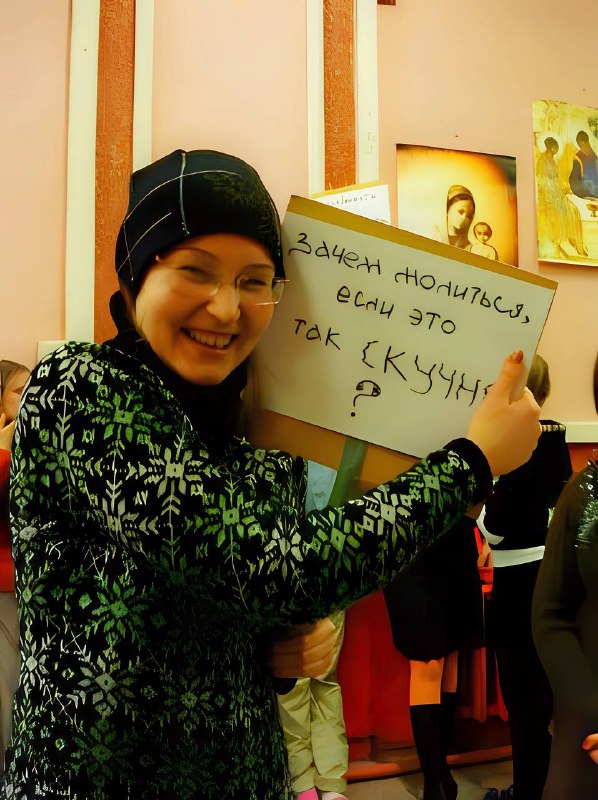 Зачем молиться,
если это
так СКУЧН
?